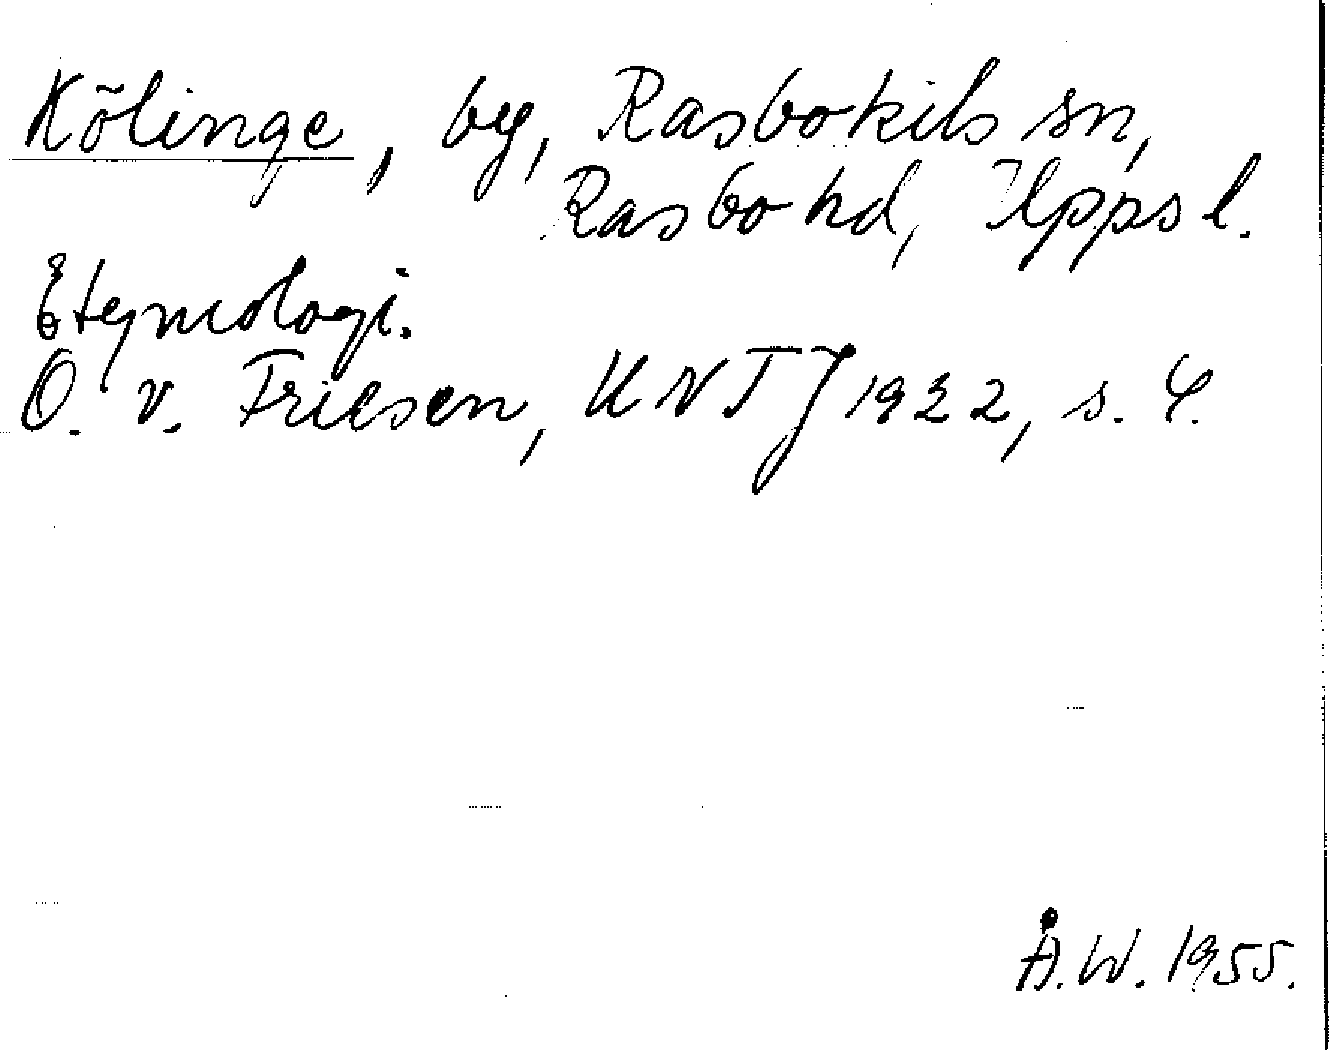 Kölinge, by, Rasbokils sn,
Rasbo hd, Uppsl.
Etymologi.
O. v. Friesen, UNTJ 1932, s. 4.
Å.W. 1955.